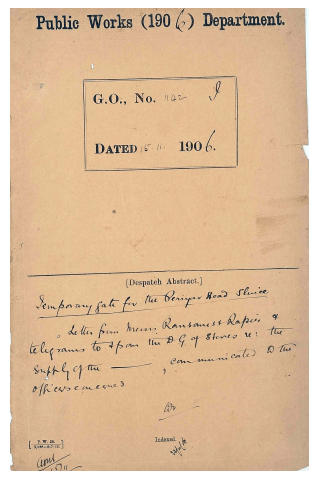 Public Works (1906) Department.
G.O., No. 1122 I
DATED 15 11 1906.
[Despatch Abstract.]
Temporary gate for the Periyar Head Sluice
Letter from Messrs Ransomes & Rapier &
telegrams to & from the D.G. of Stores re: the
supply of the ———, communicated to the
officers concerned
Indexed